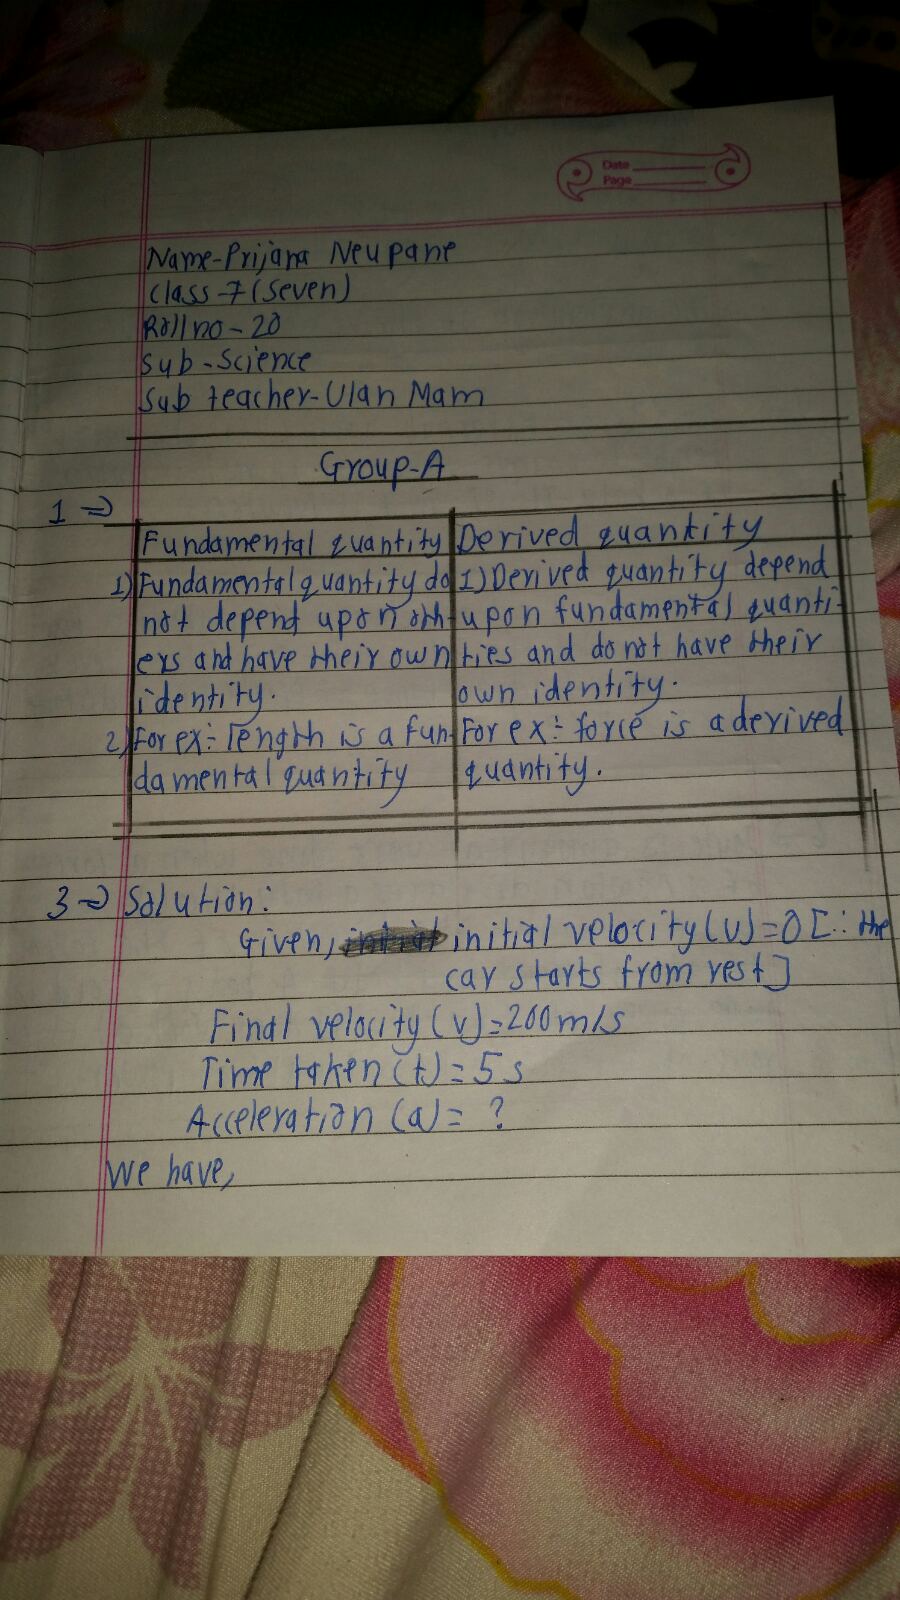 Date
Page
Name-Prijana Neupane
Class-7(Seven)
Roll no-20
Sub-Science
Sub teacher-Ulan Mam
Group-A
1⇒
Fundamental quantity
Derived quantity
1) Fundamental quantity do
not depend upon oth-
ers and have their own
identity.
2) For ex:- length is a fun-
damental quantity
1) Derived quantity depend
upon fundamental quanti-
ties and do not have their
own identity.
For ex:- force is a derived
quantity.
3⇒ Solution:
Given, initial velocity(u)=0[∴ the
car starts from rest]
Final velocity(v)=200m/s
Time taken(t)=5s
Acceleration (a)= ?
We have,